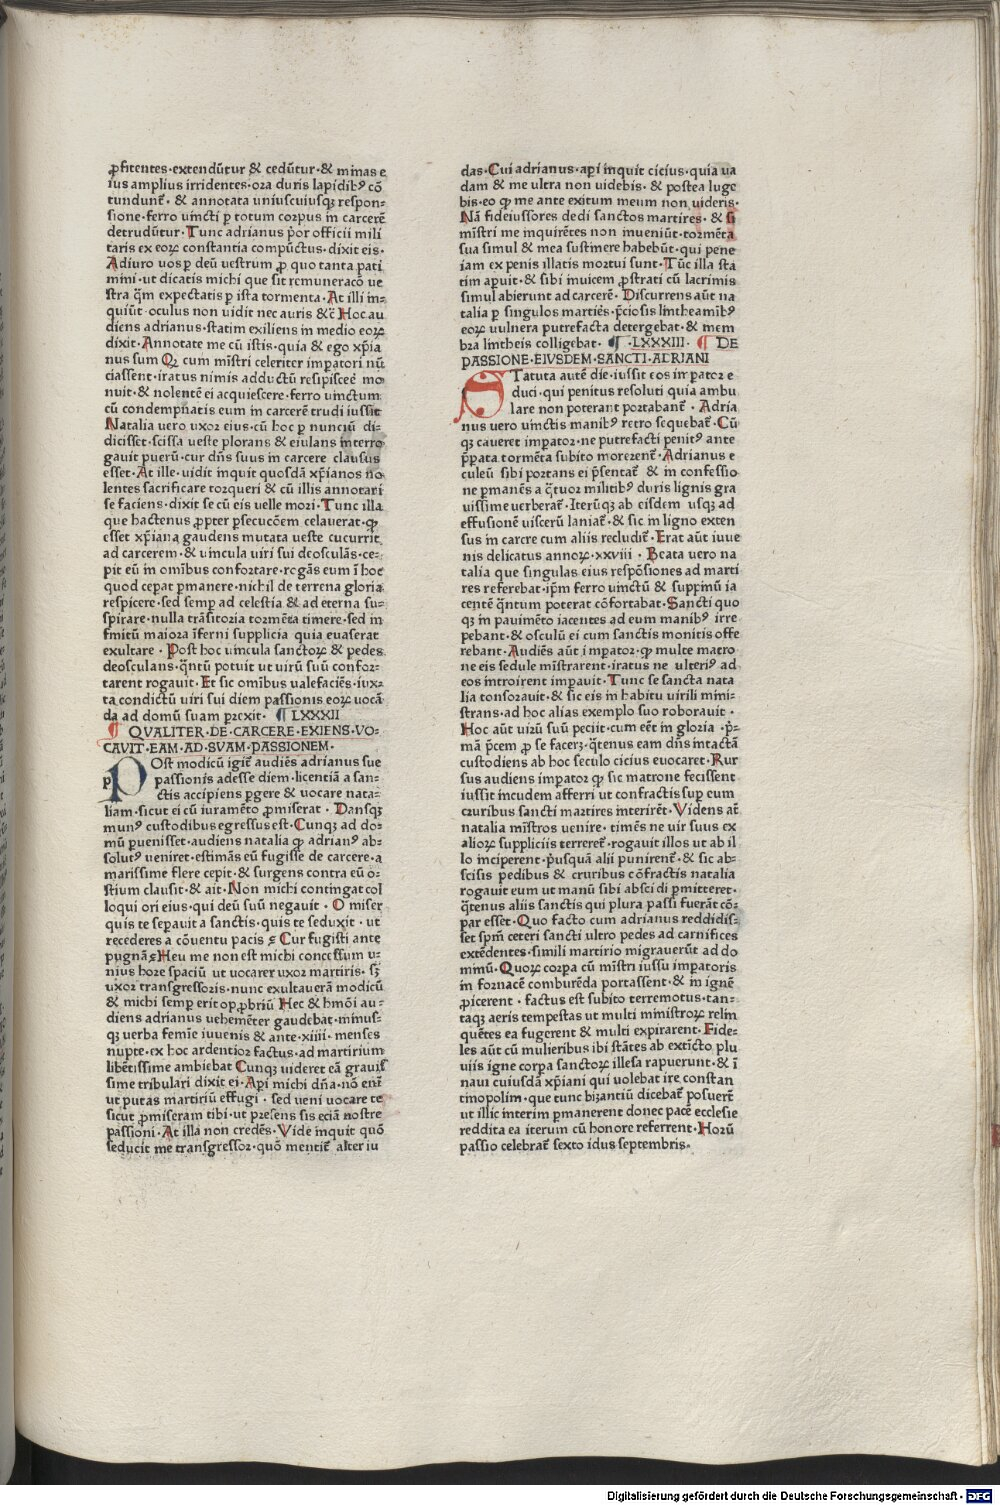 ꝓfitentes·extendūtur & cedūtur·& minas e
ius amplius irridentes·ora duris lapidibꝰ cō
tundunt᷑· & annotata uniuscuiusqꝫ respon⸗
sione·ferro uincti ꝑ totum corpus in carcerē
detrudūtur·Tunc adrianus p̄or officii mili
taris ex eoꝝ constantia compūctus·dixit eis·
Adiuro uos ꝑ deū uestrum ꝓ quo tanta pati
mini·ut dicatis michi que sit remuneracō ue
stra q̄m expectatis ꝑ ista tormenta·At illi in⸗
quiūt·oculus non uidit nec auris &c̄ Hoc au
diens adrianus·statim exiliens in medio eoꝝ
dixit·Annotate me cū istis·quia & ego xp̄ia
nus sum Qꝫ cum mīstri celeriter imꝑatori nū
ciassent·iratus nimis adductū resipiscē mo
nuit·& nolentē ei acquiescere·ferro uinctum
cū condempnatis eum in carcerē trudi iussit
Natalia uero uxor eius·cū hoc ꝑ nunciū di⸗
dicisset·scissa ueste plorans & eiulans interro
gauit puerū·cur dn̄s suus in carcere clausus
esset·At ille·uidit inquit quosdā xp̄ianos no
lentes sacrificare torqueri & cū illis annotari
se faciens·dixit se cū eis uelle mori·Tunc illa
que hactenus ꝓpter ꝑsecucōem celauerat·ꝙ
esset xp̄iana gaudens mutata ueste cucurrit
ad carcerem·& uincula uiri sui deosculās·ce⸗
pit eū in omībus confortare·rogās eum ī hoc
quod cepat ꝑmanere·nichil de terrena gloria
respicere·sed semꝑ ad celestia & ad eterna su⸗
spirare·nulla trāsitoria tormēta timere·sed in
finitū maiora īferni supplicia quia euaserat
exultare · Post hoc uincula sanctoꝝ & pedes
deosculans·q̄ntū potuit ut uirū suū confor⸗
tarent rogauit·Et sic omībus ualefaciēs·iux⸗
ta condictū uiri sui diem passionis eoꝝ uocā
da ad domū suam ꝑrexit· ¶ LXXXII
¶ QVALITER·DE·CARCERE·EXIENS·VO⸗
CAVIT·EAM·AD·SVAM·PASSIONEM·
POst modicū igit᷑ audiēs adrianus sue
passionis adesse diem·licentiā a san⸗
ctis accipiens ꝑgere & uocare nata⸗
liam·sicut ei cū iuramēto ꝓmiserat · Dansqꝫ
munꝰ custodibus egressus est·Cunqꝫ ad do⸗
mū ꝑuenisset·audiens natalia ꝙ adrianꝰ ab⸗
solutꝰ ueniret·estimās eū fugisse de carcere·a
marissime flere cepit·& surgens contra eū o⸗
stium clausit·& ait·Non michi contingat col
loqui ori eius·qui deū suū negauit · O miser
quis te seꝑauit a sanctis·quis te seduxit · ut
recederes a cōuentu pacis ꝫ Cur fugisti ante
pugnā ꝫ Heu me non est michi concessum u⸗
nius hore spaciū ut uocarer uxor martiris· sꝫ
uxor transgressoris·nunc exultauerā modicū
& michi semꝑ erit opꝓbriū Hec & hmōi au⸗
diens adrianus uehemēter gaudebat·mirus⸗
qꝫ uerba femīe iuuenis & ante·xiiii· menses
nupte·ex hoc ardentior factus·ad martirium
libētissime ambiebat Cunqꝫ uideret eā grauis
sime tribulari dixit ei·Aꝑi michi dn̄a·nō eni᷑
ut putas martiriū effugi · sed ueni uocare te
sicut ꝓmiseram tibi·ut presens sis eciā nostre
passioni·At illa non credēs·Vide inquit quō
seducit me transgressor·quō mentit᷑ alter iu
das·Cui adrianus·aꝑi inquit cicius·quia ua
dam & me ultra non uidebis·& postea luge
bis·eo ꝙ me ante exitum meum non uideris·
Nā fideiussores dedi sanctos martires·& si
mīstri me inquirētes non inueniūt·tormēta
sua simul & mea sustinere habebūt·qui pene
iam ex penis illatis mortui sunt·Tūc illa sta
tim aꝑuit·& sibi inuicem ꝓstrati cū lacrimis
simul abierunt ad carcerē·Discurrens aūt na
talia ꝑ singulos martiēs·p̄ciosis lintheamībꝰ
eoꝝ uulnera putrefacta detergebat·& mem
bra lintheis colligebat· ¶ ·LXXXIII· ¶ DE
PASSIONE·EIVSDEM·SANCTI·ADRIANI
STatuta autē die·iussit eos imꝑator e
duci·qui penitus resoluti quia ambu
lare non poterant portabant᷑ · Adria
nus uero uinctis manibꝰ retro sequebat᷑·Cū
qꝫ caueret imꝑator·ne putrefacti penitꝰ ante
p̄ꝑata tormēta subito morerent᷑·Adrianus e
culeū sibi portans ei p̄sentat᷑ & in confessio
ne ꝑmanēs a q̄tuor militibꝰ duris lignis gra
uissime uerberat᷑·Iterūqꝫ ab eisdem usqꝫ ad
effusionē uiscerū laniat᷑·& sic in ligno exten
sus in carcre cum aliis recludit᷑·Erat aūt iuue
nis delicatus annoꝝ·xxviii · Beata uero na
talia que singulas eius respōsiones ad marti
res referebat·ip̄m ferro uinctū & suppinū ia
centē q̄ntum poterat cōfortabat·Sancti quo
qꝫ in pauimēto iacentes ad eum manibꝰ irre
pebant·& osculū ei cum sanctis monitis offe
rebant·Audiēs aūt imꝑator·ꝙ multe matro
ne eis sedule mīstrarent·iratus ne ulteriꝰ ad
eos introirent impauit·Tunc se sancta nata
lia tonsorauit·& sic eis in habitu uirili mini⸗
strans·ad hoc alias exemplo suo roborauit ·
Hoc aūt uirū suū peciit·cum eēt in gloria ·p̄⸗
mā p̄cem ꝓ se facerꝫ·q̄tenus eam dn̄s intactā
custodiens ab hoc seculo cicius euocaret·Rur
sus audiens imꝑator ꝙ sic matrone fecissent
iussit incudem afferri ut confractis suꝑ eum
cruribus sancti martires interirēt·Videns at̄
natalia mīstros uenire·timēs ne uir suus ex
alioꝝ suppliciis terreret᷑·rogauit illos ut ab il
lo inciperent·p̄usquā alii punirent᷑·& sic ab⸗
scisis pedibus & cruribus cōfractis natalia
rogauit eum ut manū sibi absci di ꝑmitteret·
q̄tenus aliis sanctis qui plura passi fuerāt cō⸗
par esset·Quo facto cum adrianus reddidis⸗
set sp̄m ceteri sancti ultro pedes ad carnifices
extēdentes·simili martirio migrauerūt ad do
minū·Quoꝝ corpa cū mīstri iussu imꝑatoris
in fornacē comburēda portassent·& in ignē
ꝓicerent · factus est subito terremotus·tan⸗
taqꝫ aeris tempestas ut multi ministroꝝ relin
quētes ea fugerent & multi expirarent·Fide⸗
les aūt cū mulieribus ibi stātes ab extīcto plu
uiis igne corpa sanctoꝝ illesa rapuerunt·& ī
naui cuiusdā xp̄iani qui uolebat ire constan
tinopolim·que tunc bizantiū dicebat᷑ posuer̄t
ut illic interim ꝑmanerent donec pacē ecclesie
reddita ea iterum cū honore referrent·Horū
passio celebrat᷑ sexto idus septembris·
Digitalisierung gefördert durch die Deutsche Forschungsgemeinschaft - DFG